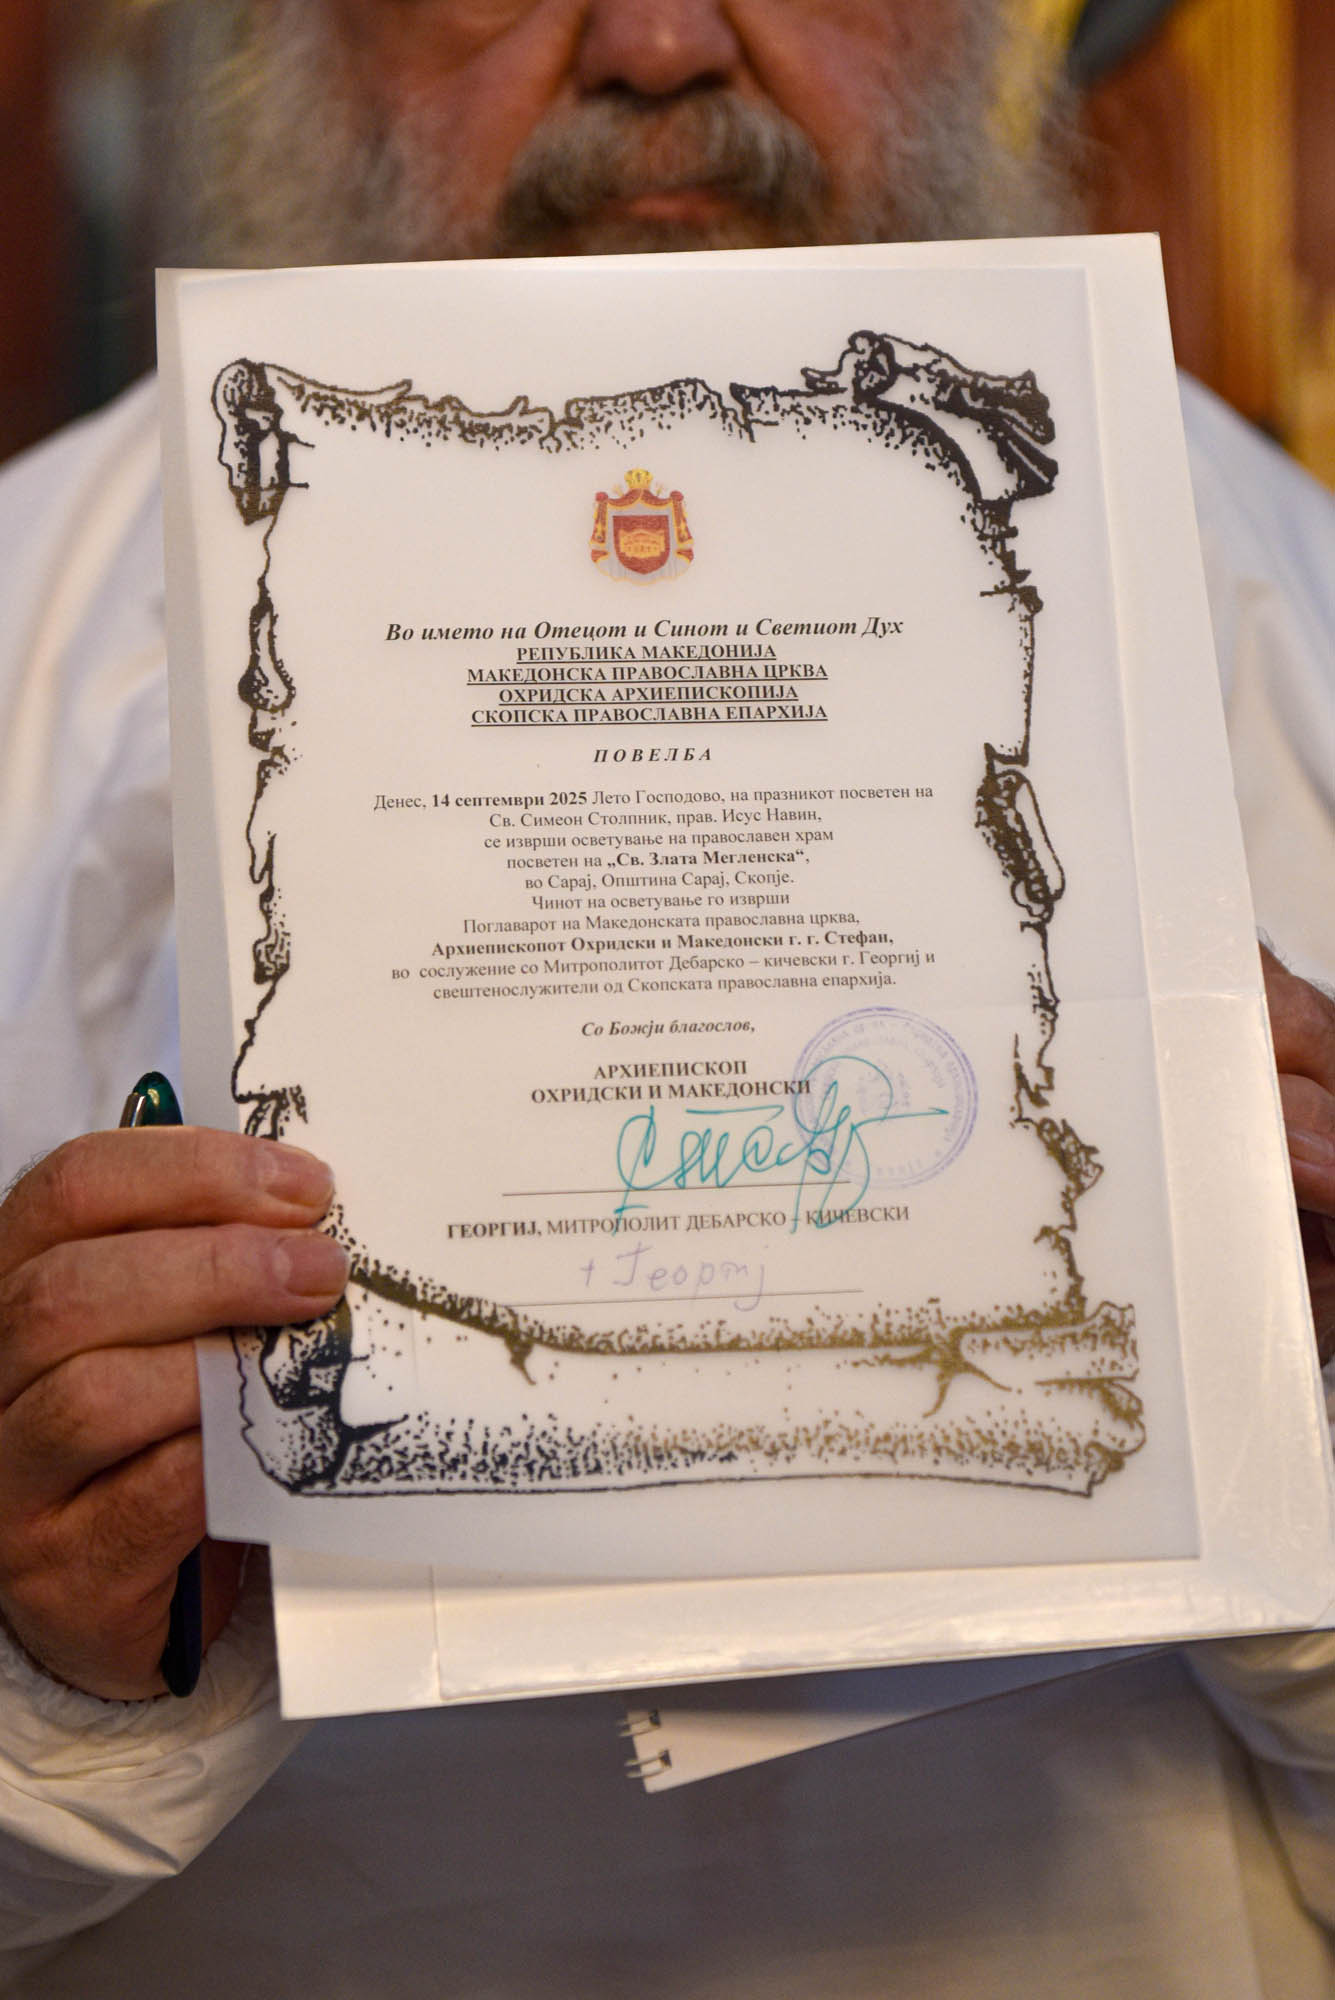 Во името на Отецот и Синот и Светиот Дух
РЕПУБЛИКА МАКЕДОНИЈА
МАКЕДОНСКА ПРАВОСЛАВНА ЦРКВА
ОХРИДСКА АРХИЕПИСКОПИЈА
СКОПСКА ПРАВОСЛАВНА ЕПАРХИЈА
П О В Е Л Б А
Денес, 14 септември 2025 Лето Господово, на празникот посветен на
Св. Симеон Столпник, прав. Исус Навин,
се изврши осветување на православен храм
посветен на „Св. Злата Мегленска“,
во Сарај, Општина Сарај, Скопје.
Чинот на осветување го изврши
Поглаварот на Македонската православна црква,
Архиепископот Охридски и Македонски г. г. Стефан,
во сослужение со Митрополитот Дебарско – кичевски г. Георгиј и
свештенослужители од Скопската православна епархија.
Со Божји благослов,
АРХИЕПИСКОП
ОХРИДСКИ И МАКЕДОНСКИ
ГЕОРГИЈ, МИТРОПОЛИТ ДЕБАРСКО – КИЧЕВСКИ
+ Георгиј